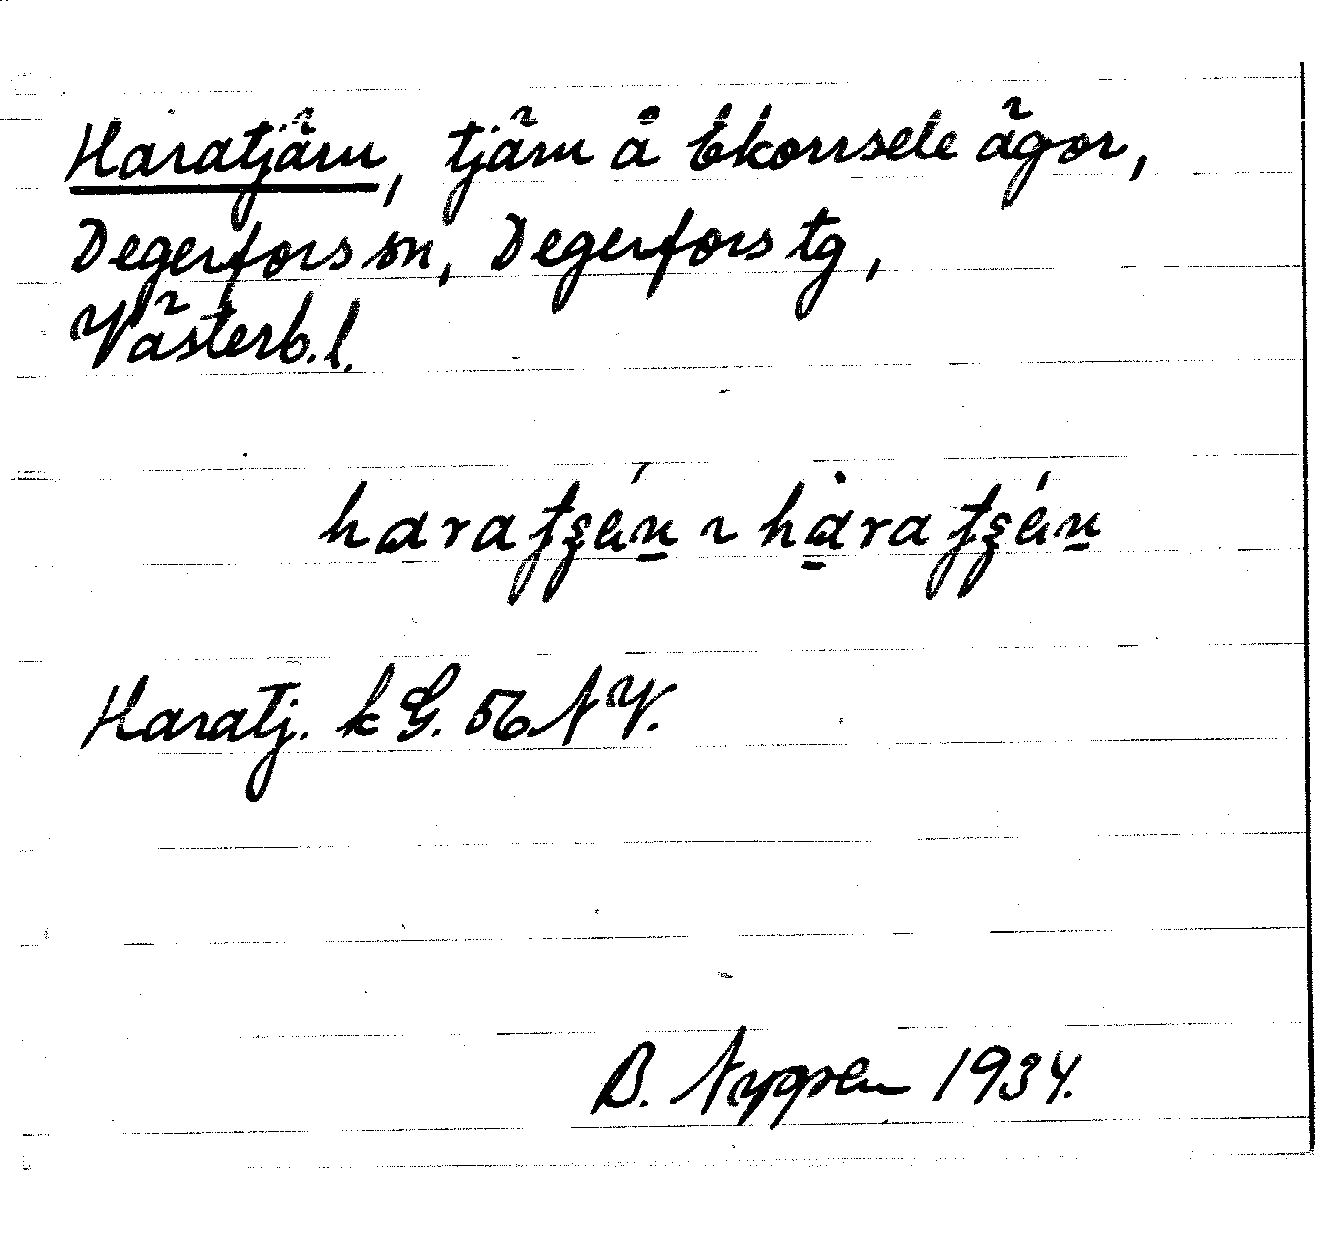 Haratjärn, tjärn å Ekorrsele ägor,
Degerfors sn, Degerfors tg,
Västerb. l.
Haratj. k G. 56 NV.
B. Nygren 1934.